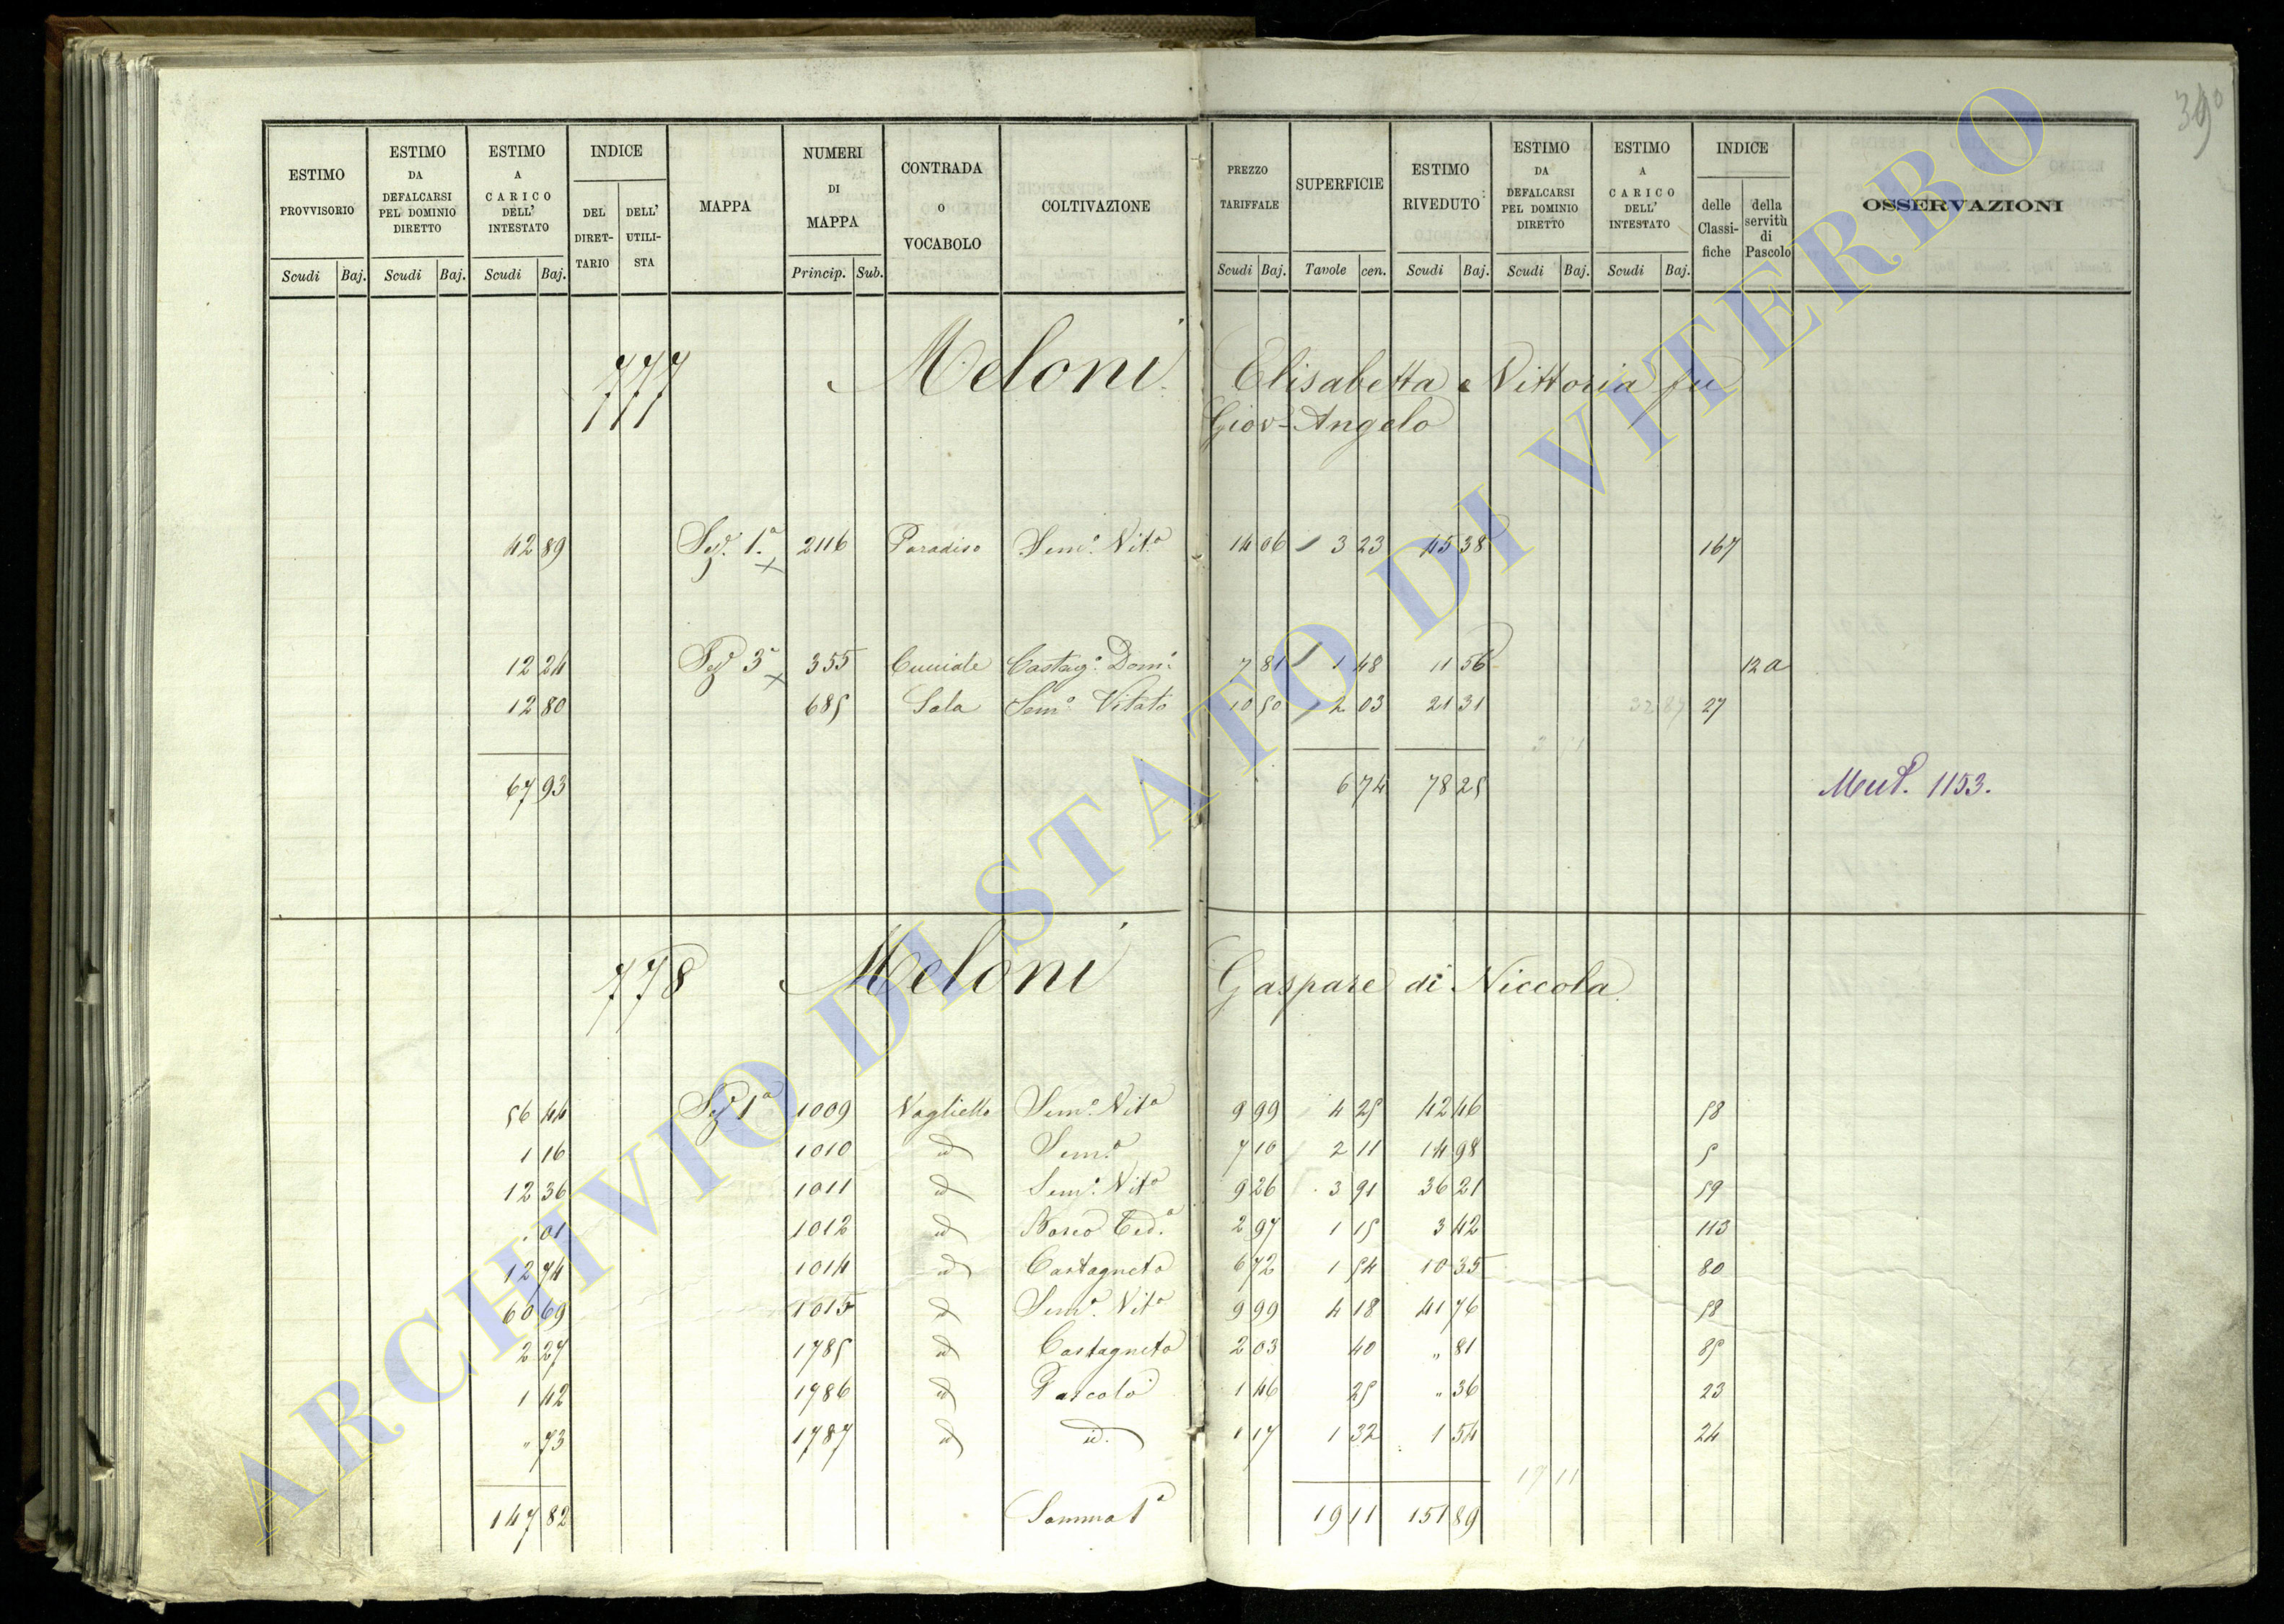 390
ESTIMO PROVVISORIO Scudi Baj.
ESTIMO DA DEFALCARSI PEL DOMINIO DIRETTO Scudi Baj.
ESTIMO A CARICO DELL' INTESTATO Scudi Baj.
INDICE DEL DIRET-TARIO DELL' UTILI-STA
MAPPA
NUMERI DI MAPPA Princip. Sub.
CONTRADA o VOCABOLO
COLTIVAZIONE
PREZZO TARIFFALE Scudi Baj.
SUPERFICIE Tavole cen.
ESTIMO RIVEDUTO Scudi Baj.
ESTIMO DA DEFALCARSI PEL DOMINIO DIRETTO Scudi Baj.
ESTIMO A CARICO DELL' INTESTATO Scudi Baj.
INDICE delle Classi-fiche della servitù di Pascolo
OSSERVAZIONI
777 Meloni Elisabetta e Vittoria fu
Giov. Angelo
42 89 Sez. 1ª 2116 Paradiso Semo. Vito 14 06 3 23 45 38 167
12 24 Sez. 3ª 355 Castago. Domo. 7 81 1 48 11 56 12 a
12 80 685 Sala Semo. Vitato 10 50 2 03 21 31 27
67 93 6 74 78 25 1153.
778 Meloni Gaspare di Niccola
56 44 Sez 1ª 1009 Vaglietto Semo. Vito 9 99 4 25 42 46 58
1 16 1010 id Semo. 7 10 2 11 14 98 5
12 36 1011 id Semo. Vito 9 26 3 91 36 21 59
. 01 1012 id Bosco Ced.o 2 97 1 15 3 42 113
12 74 1014 id Castagneto 6 72 1 54 10 35 80
60 69 1015 id Semo. Vito 9 99 4 18 41 76 58
2 27 1785 id Castagneto 2 03 40 " 81 85
1 42 1786 id Pascolo 1 46 25 " 36 23
" 73 1787 id id. 1 17 1 32 1 54 24
147 82 Somma 1ª 19 11 151 89
ARCHIVIO DI STATO DI VITERBO